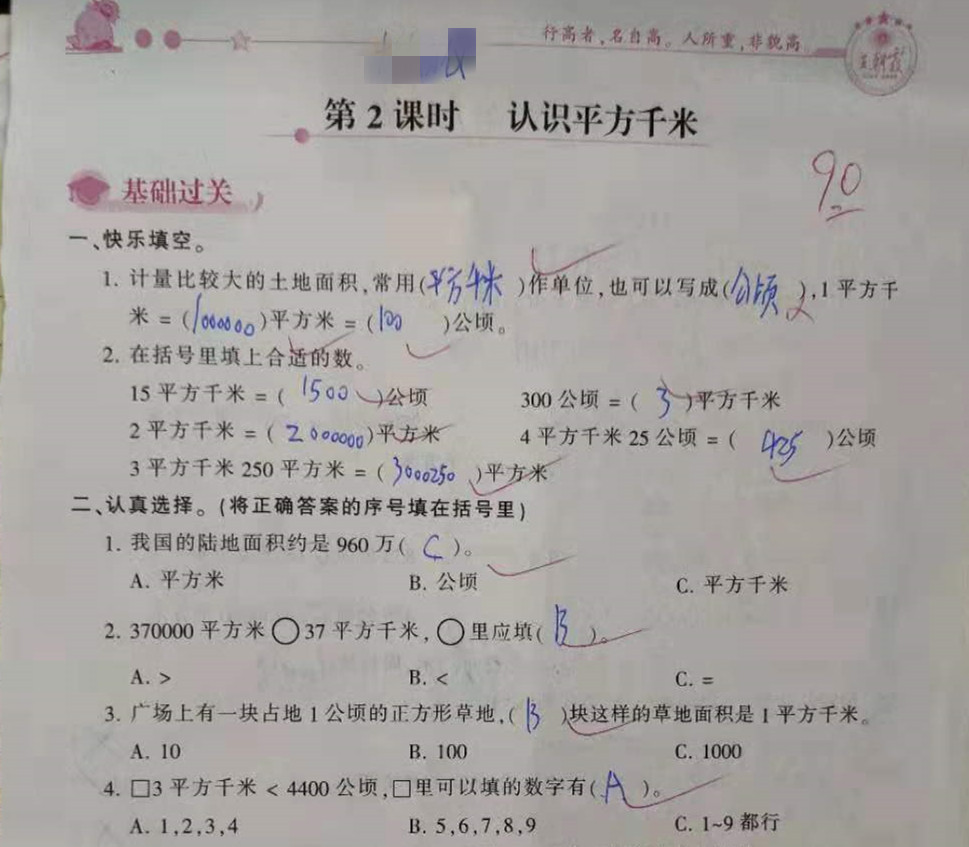 行高者,名自高。人所重,非貌高。
王朝霞
第2课时 认识平方千米
90
基础过关
一、快乐填空。
1. 计量比较大的土地面积,常用(平方千米)作单位,也可以写成(公顷),1平方千
米=(1000000)平方米=(100)公顷。
2. 在括号里填上合适的数。
15平方千米=(1500)公顷 300公顷=(3)平方千米
2平方千米=(2000000)平方米 4平方千米25公顷=(425)公顷
3平方千米250平方米=(3000250)平方米
二、认真选择。(将正确答案的序号填在括号里)
1. 我国的陆地面积约是960万(C)。
A. 平方米 B. 公顷 C. 平方千米
2. 370000平方米○37平方千米,○里应填(B)。
A. > B. < C. =
3. 广场上有一块占地1公顷的正方形草地,(B)块这样的草地面积是1平方千米。
A. 10 B. 100 C. 1000
4. □3平方千米<4400公顷,□里可以填的数字有(A)。
A. 1,2,3,4 B. 5,6,7,8,9 C. 1~9都行